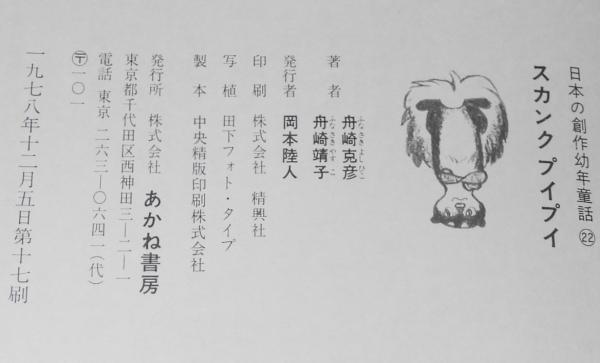 日本の創作幼年童話 ㉒
スカンク プイプイ
著者 舟崎克彦
ふなざきよしひこ
舟崎靖子
ふなざきやすこ
発行者 岡本陸人
印刷 株式会社 精興社
写植 田下フォト・タイプ
製本 中央精版印刷株式会社
発行所 株式会社 あかね書房
東京都千代田区西神田三—二—一
電話 東京 二六三—〇六四一(代)
〶一〇一
一九七八年十二月五日第十七刷